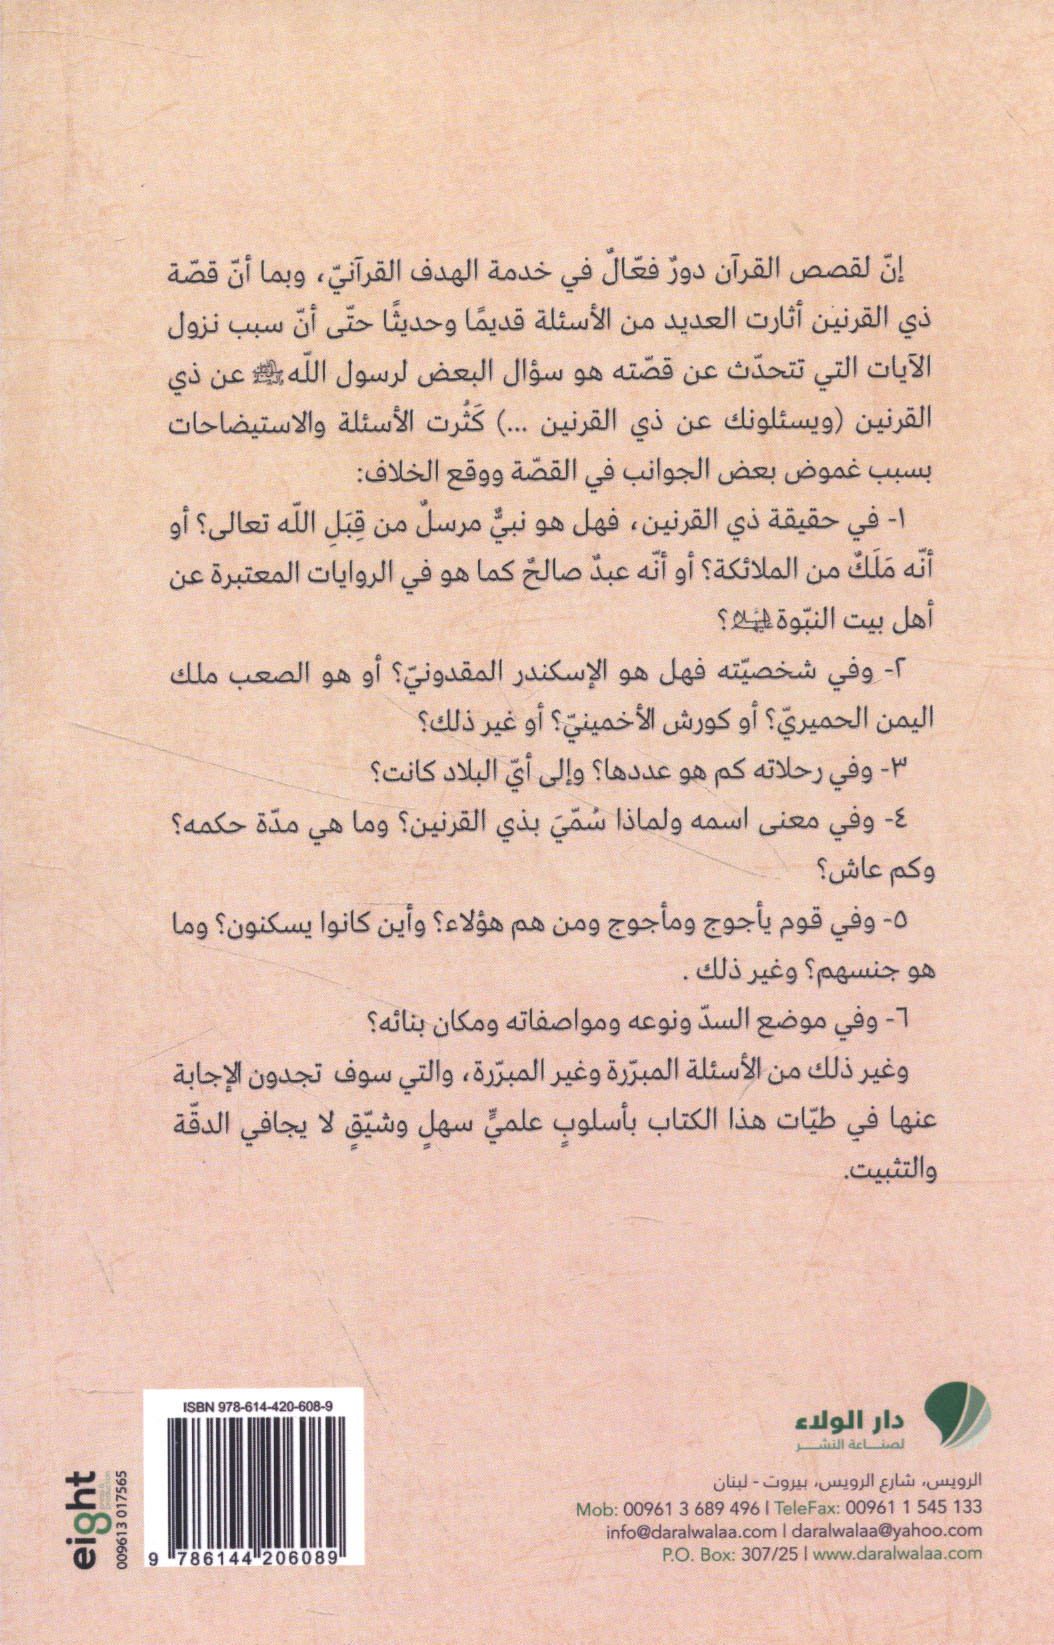 إنّ لقصص القرآن دورٌ فعّالٌ في خدمة الهدف القرآنيّ، وبما أنّ قصّة
ذي القرنين أثارت العديد من الأسئلة قديمًا وحديثًا حتّى أنّ سبب نزول
الآيات التي تتحدّث عن قصّته هو سؤال البعض لرسول اللّه ﷺ عن ذي
القرنين (ويسئلونك عن ذي القرنين ...) كَثُرت الأسئلة والاستيضاحات
بسبب غموض بعض الجوانب في القصّة ووقع الخلاف:
١- في حقيقة ذي القرنين، فهل هو نبيٌّ مرسلٌ من قِبَلِ اللّه تعالى؟ أو
أنّه مَلَكٌ من الملائكة؟ أو أنّه عبدٌ صالحٌ كما هو في الروايات المعتبرة عن
أهل بيت النبّوة؟
٢- وفي شخصيّته فهل هو الإسكندر المقدونيّ؟ أو هو الصعب ملك
اليمن الحميريّ؟ أو كورش الأخمينيّ؟ أو غير ذلك؟
٣- وفي رحلاته كم هو عددها؟ وإلى أيّ البلاد كانت؟
٤- وفي معنى اسمه ولماذا سُمّيَ بذي القرنين؟ وما هي مدّة حكمه؟
وكم عاش؟
٥- وفي قوم يأجوج ومأجوج ومن هم هؤلاء؟ وأين كانوا يسكنون؟ وما
هو جنسهم؟ وغير ذلك .
٦- وفي موضع السدّ ونوعه ومواصفاته ومكان بنائه؟
وغير ذلك من الأسئلة المبرّرة وغير المبرّرة، والتي سوف تجدون الإجابة
عنها في طيّات هذا الكتاب بأسلوبٍ علميٍّ سهلٍ وشيّقٍ لا يجافي الدقّة
والتثبيت.
ISBN 978-614-420-608-9
9 786144 206089
eight
009613 017565
دار الولاء
لصناعة النشر
الرويس، شارع الرويس، بيروت - لبنان
Mob: 00961 3 689 496 | TeleFax: 00961 1 545 133
info@daralwalaa.com | daralwalaa@yahoo.com
P.O. Box: 307/25 | www.daralwalaa.com